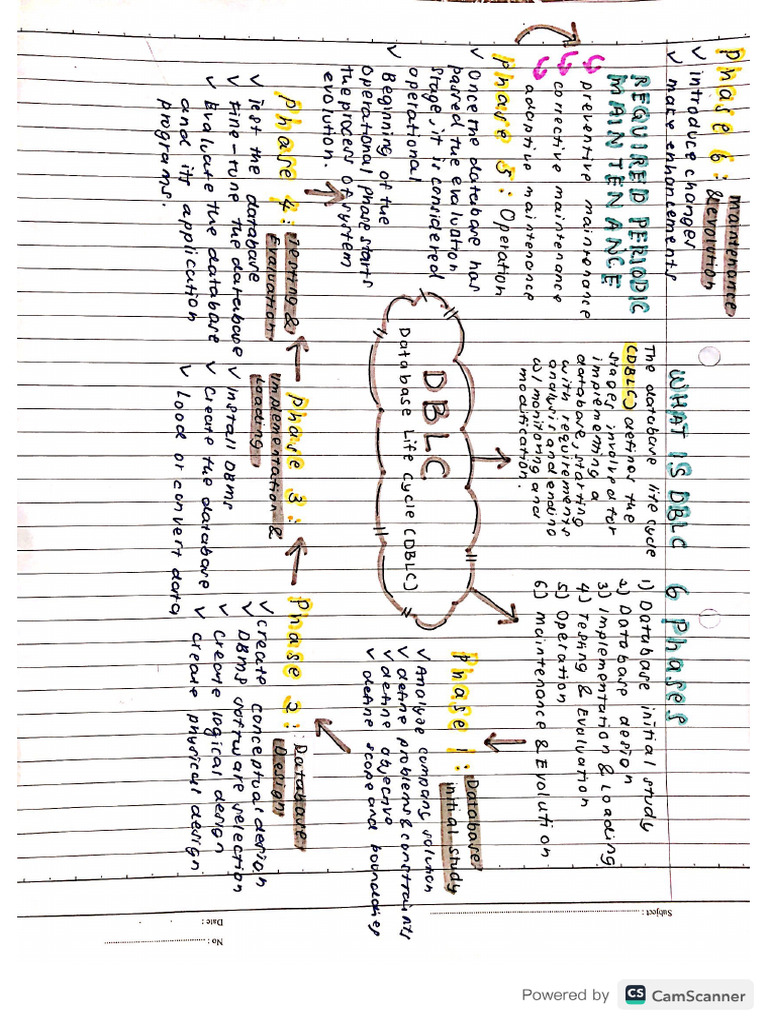 WHAT IS DBLC
The database life cycle
(DBLC) defines the
stages involved for
implementing a
database, starting
with requirements
analysis and ending
w/ monitoring and
modification.
6 Phases
1) Database initial study
2) Database design
3) Implementation & Loading
4) Testing & Evaluation
5) Operation
6) Maintenance & Evolution
DBLC
Database Life Cycle (DBLC)
Phase 1: Database
initial study
✓ Analyze company solution
✓ define problems & constraints
✓ define objective
✓ define scope and boundaries
Phase 2: Database
Design
✓ Create conceptual design
✓ DBMS software selection
✓ Create logical design
✓ Create physical design
Phase 3:
Implementation &
Loading
✓ Install DBMS
✓ Create the database
✓ Load or convert data
Phase 4: Testing &
Evaluation
✓ Test the database
✓ Fine-tune the database
✓ Evaluate the database
and its application
programs.
Phase 5: Operation
✓ Once the database has
passed the evaluation
stage, it is considered
operational
✓ Beginning of the
operational phase starts
the process of system
evolution.
Phase 6: Maintenance
& Evolution
✓ introduce changes
✓ make enhancements
REQUIRED PERIODIC
MAINTENANCE
preventive maintenance
corrective maintenance
adaptive maintenance
Subject :
Date :
No :
Powered by CS CamScanner